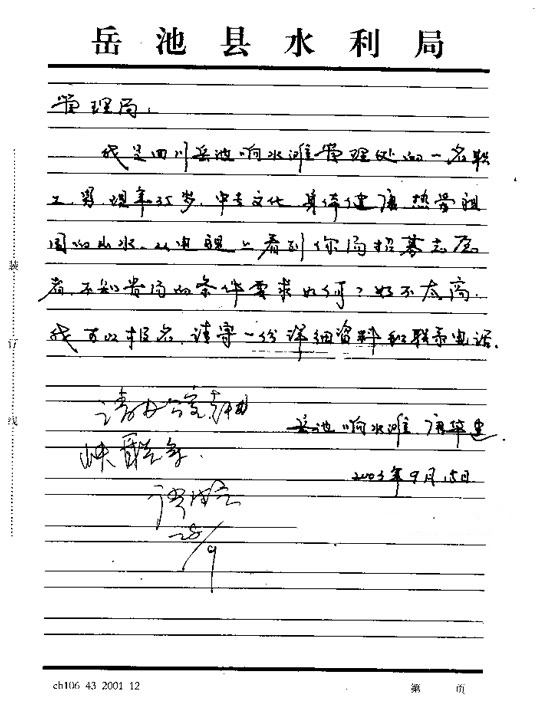 岳池县水利局
管理局:
我是四川岳池响水滩管理处的一名职
工,男,现年35岁,中专文化,身体健康,热爱祖
国的山水。从电视上看到你局招募志愿
者,不知贵局的条件要求如何?如不太高,
我可以报名,请寄一份详细资料和联系电话。
岳池响水滩 唐
2003年9月15日
请
28/9
装
订
线
ch106 43 2001 12
第 页